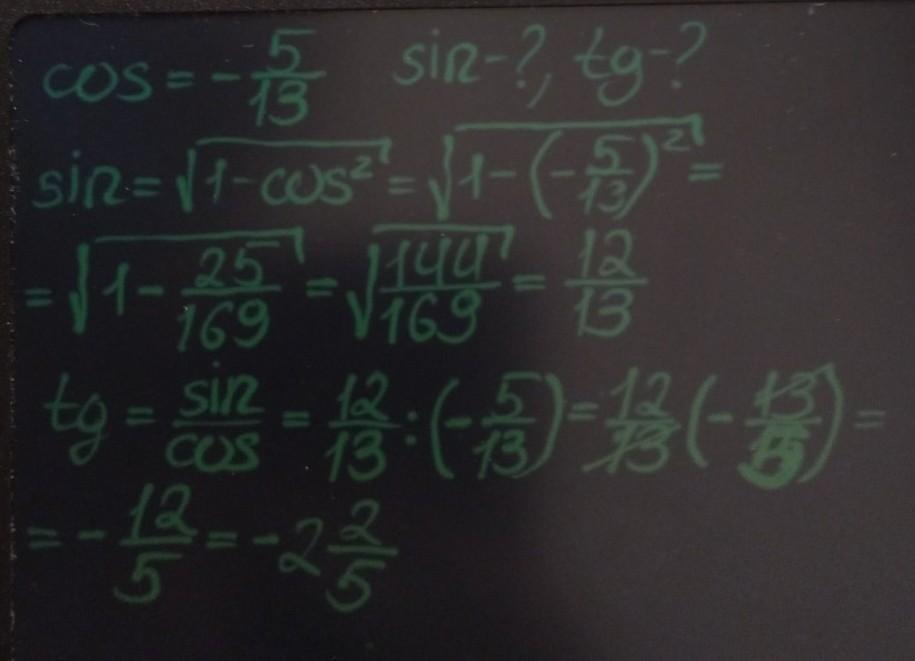 cos = - 5/13 sin-?, tg-?
sin = √(1 - cos²) = √(1 - (- 5/13)²) =
= √(1 - 25/169) = √(144/169) = 12/13
tg = sin/cos = 12/13 : (- 5/13) = 12/13 (- 13/5) =
= - 12/5 = - 2 2/5